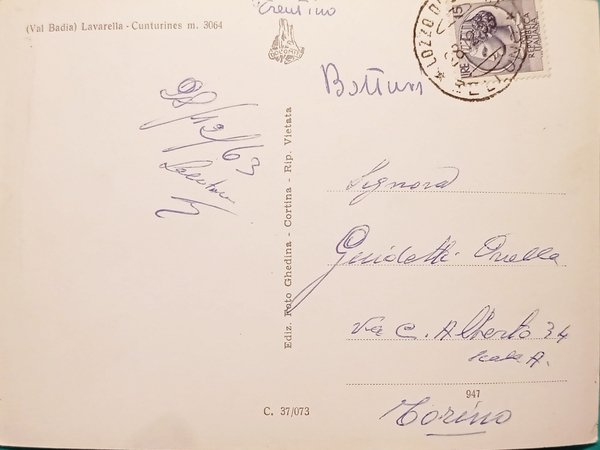 (Val Badia) Lavarella - Cunturines m. 3064
Trentino
Bottum
28/12/63
Ediz. Foto Ghedina - Cortina - Rip. Vietata
Signora
Guidetti Ornella
Via C. Alberto 34
Scala A.
947
Torino
C. 37/073
LOZZO